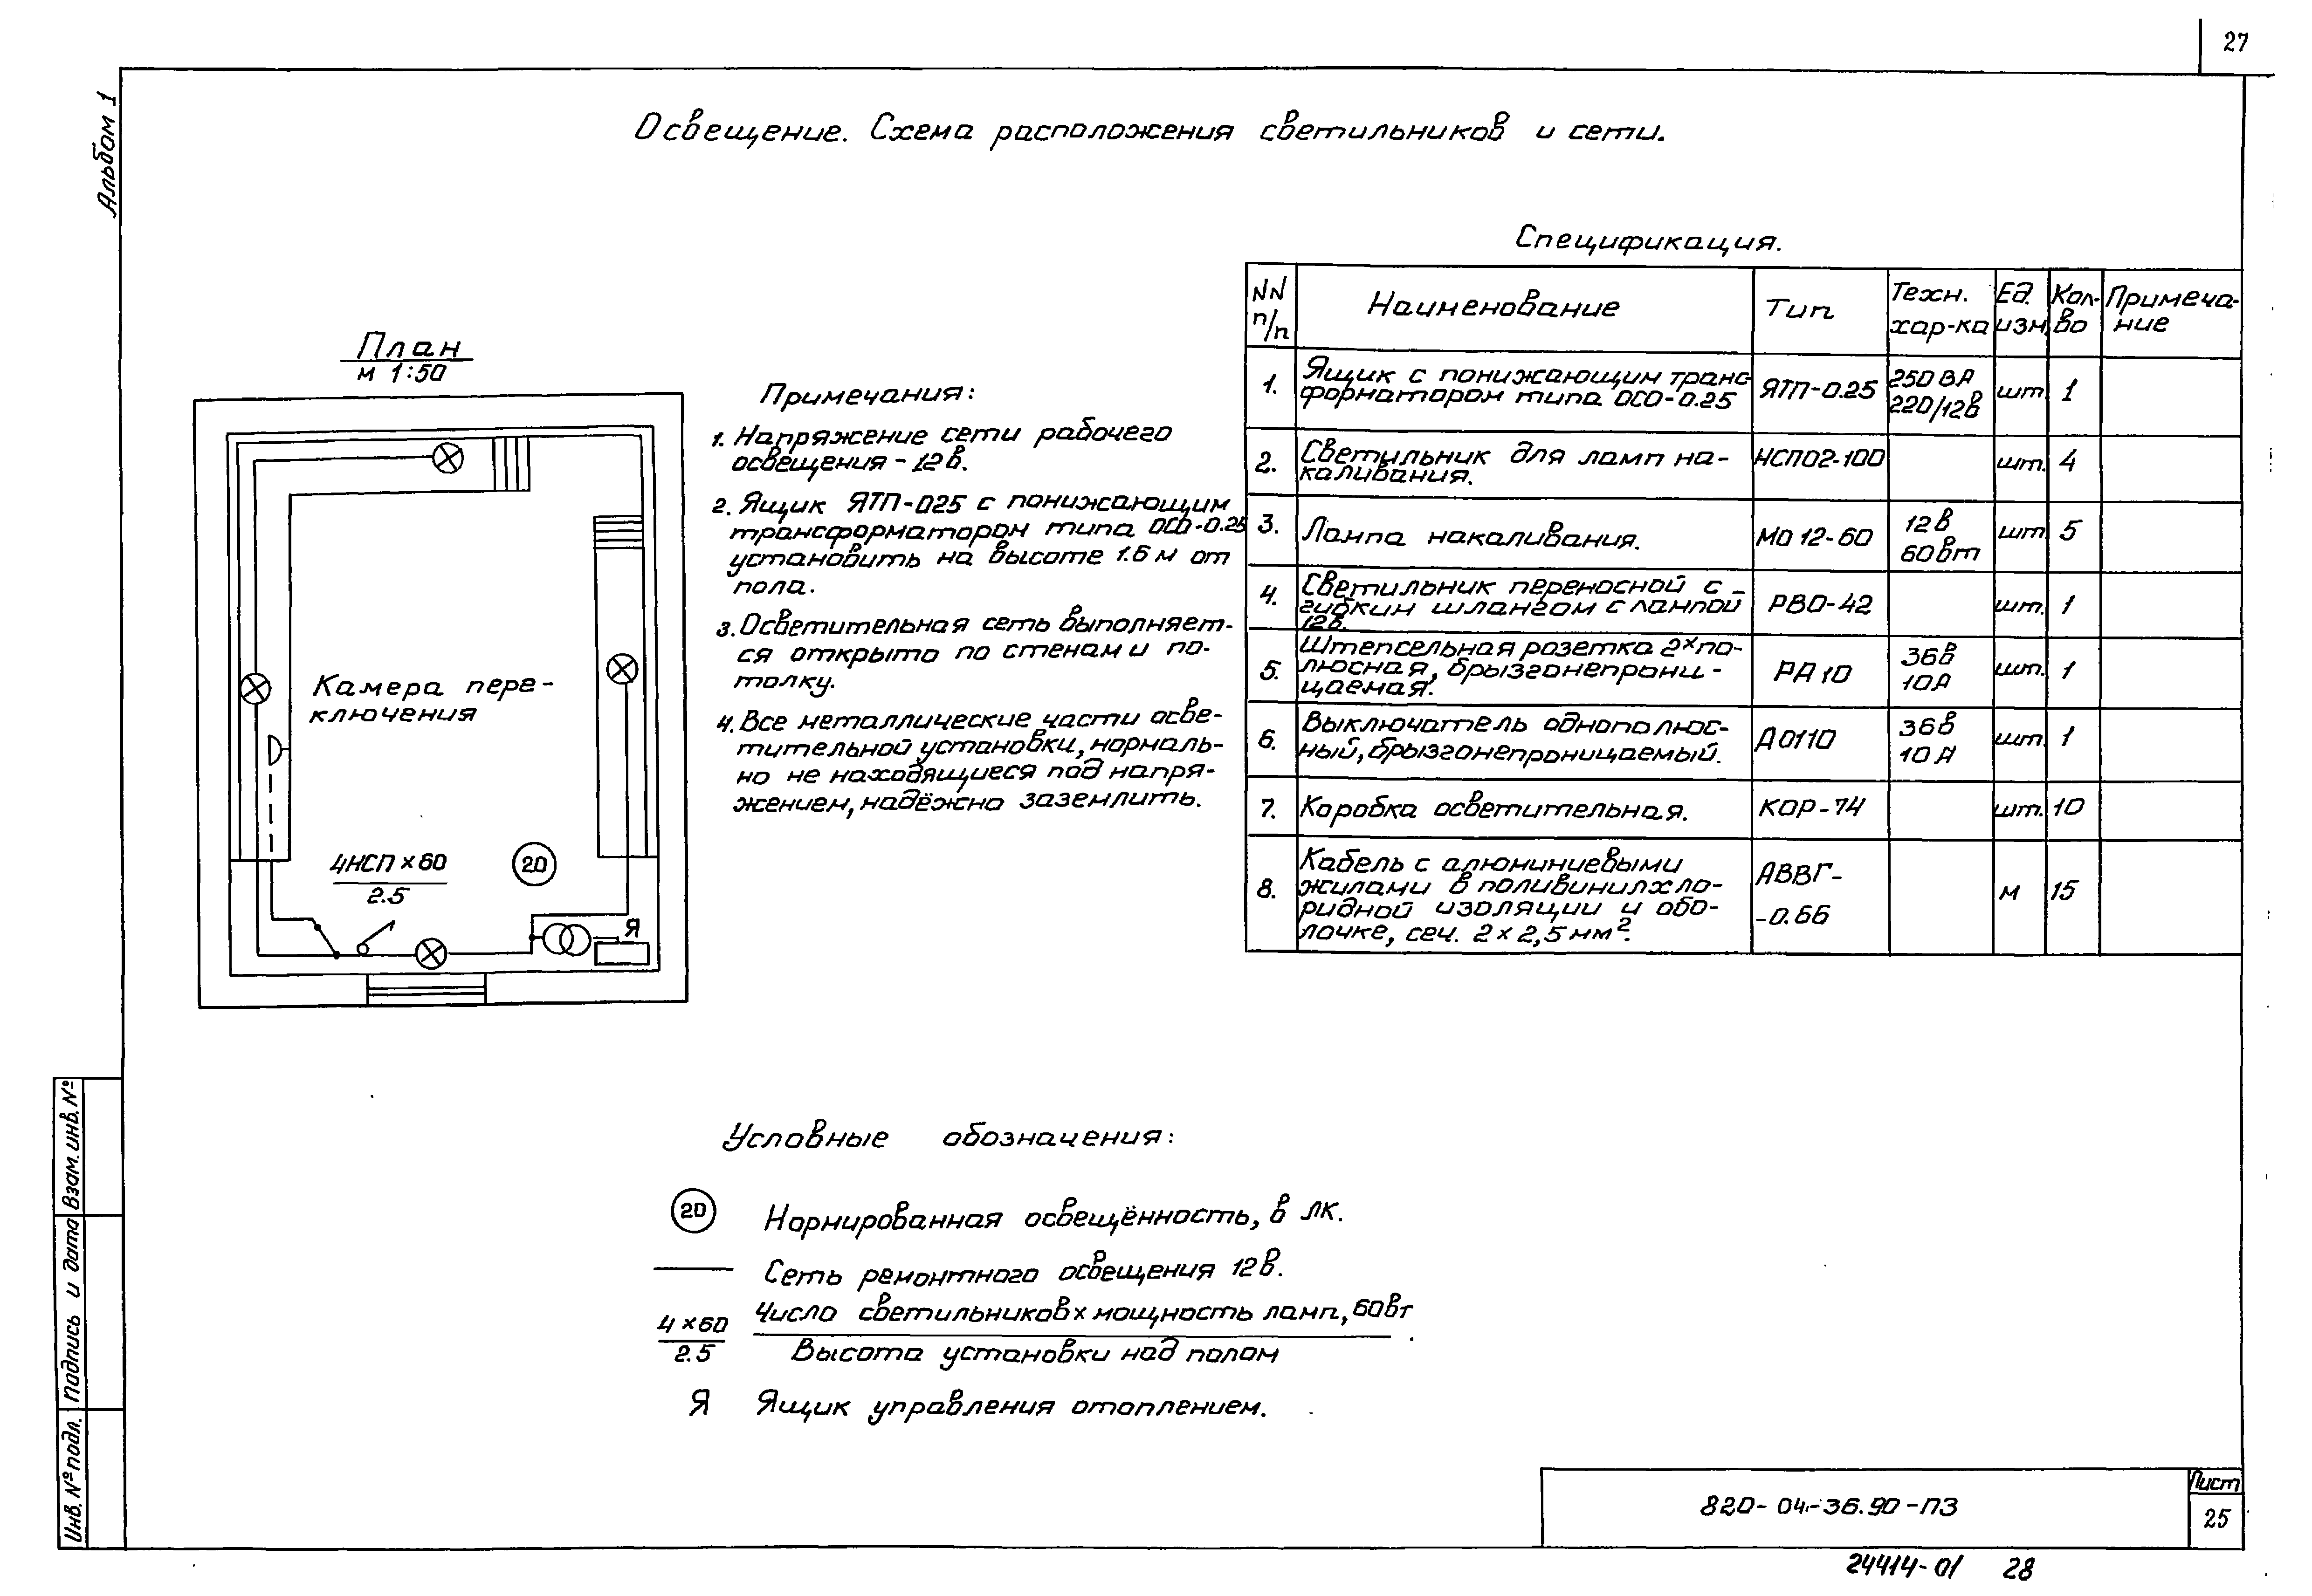 27
Альбом 1
Освещение. Схема расположения светильников и сети.
План
М 1:50
Камера пере-
ключения
4НСП х 60
2.5
20
Я
Примечания:
1. Напряжение сети рабочего
освещения - 12 в.
2. Ящик ЯТП-025 с понижающим
трансформатором типа ОСО-0.25
установить на высоте 1.6 м от
пола.
3. Осветительная сеть выполняет-
ся открыто по стенам и по-
толку.
4. Все металлические части осве-
тительной установки, нормаль-
но не находящиеся под напря-
жением, надёжно заземлить.
Спецификация.
NN п/п | Наименование | Тип | Техн. хар-ка | Ед. изм. | Кол-во | Примеча-ние
1. Ящик с понижающим транс-
форматором типа ОСО-0.25 ЯТП-0.25 250 ВА 220/12в шт. 1
2. Светильник для ламп на-
каливания. НСП02-100 шт. 4
3. Лампа накаливания. МО 12-60 12в 60вт шт. 5
4. Светильник переносной с
гибким шлангом с лампой
12в. РВО-42 шт. 1
5. Штепсельная розетка 2хпо-
люсная, брызгонепрони-
цаемая. РД 10 36в 10А шт. 1
6. Выключатель однополюс-
ный, брызгонепроницаемый. Д0110 36в 10А шт. 1
7. Коробка осветительная. КОР-74 шт. 10
8. Кабель с алюминиевыми
жилами в поливинилхло-
ридной изоляции и обо-
лочке, сеч. 2х2,5мм². АВВГ-
-0.66 м 15
Условные обозначения:
20 Нормированная освещённость, в лк.
Сеть ремонтного освещения 12в.
4 х 60 Число светильников х мощность ламп, 60вт
2.5 Высота установки над полом
Я Ящик управления отоплением.
Взам. инв. №
Подпись и дата
Инв. № подл.
820-04-36.90-ПЗ
Лист
25
24414-01 28